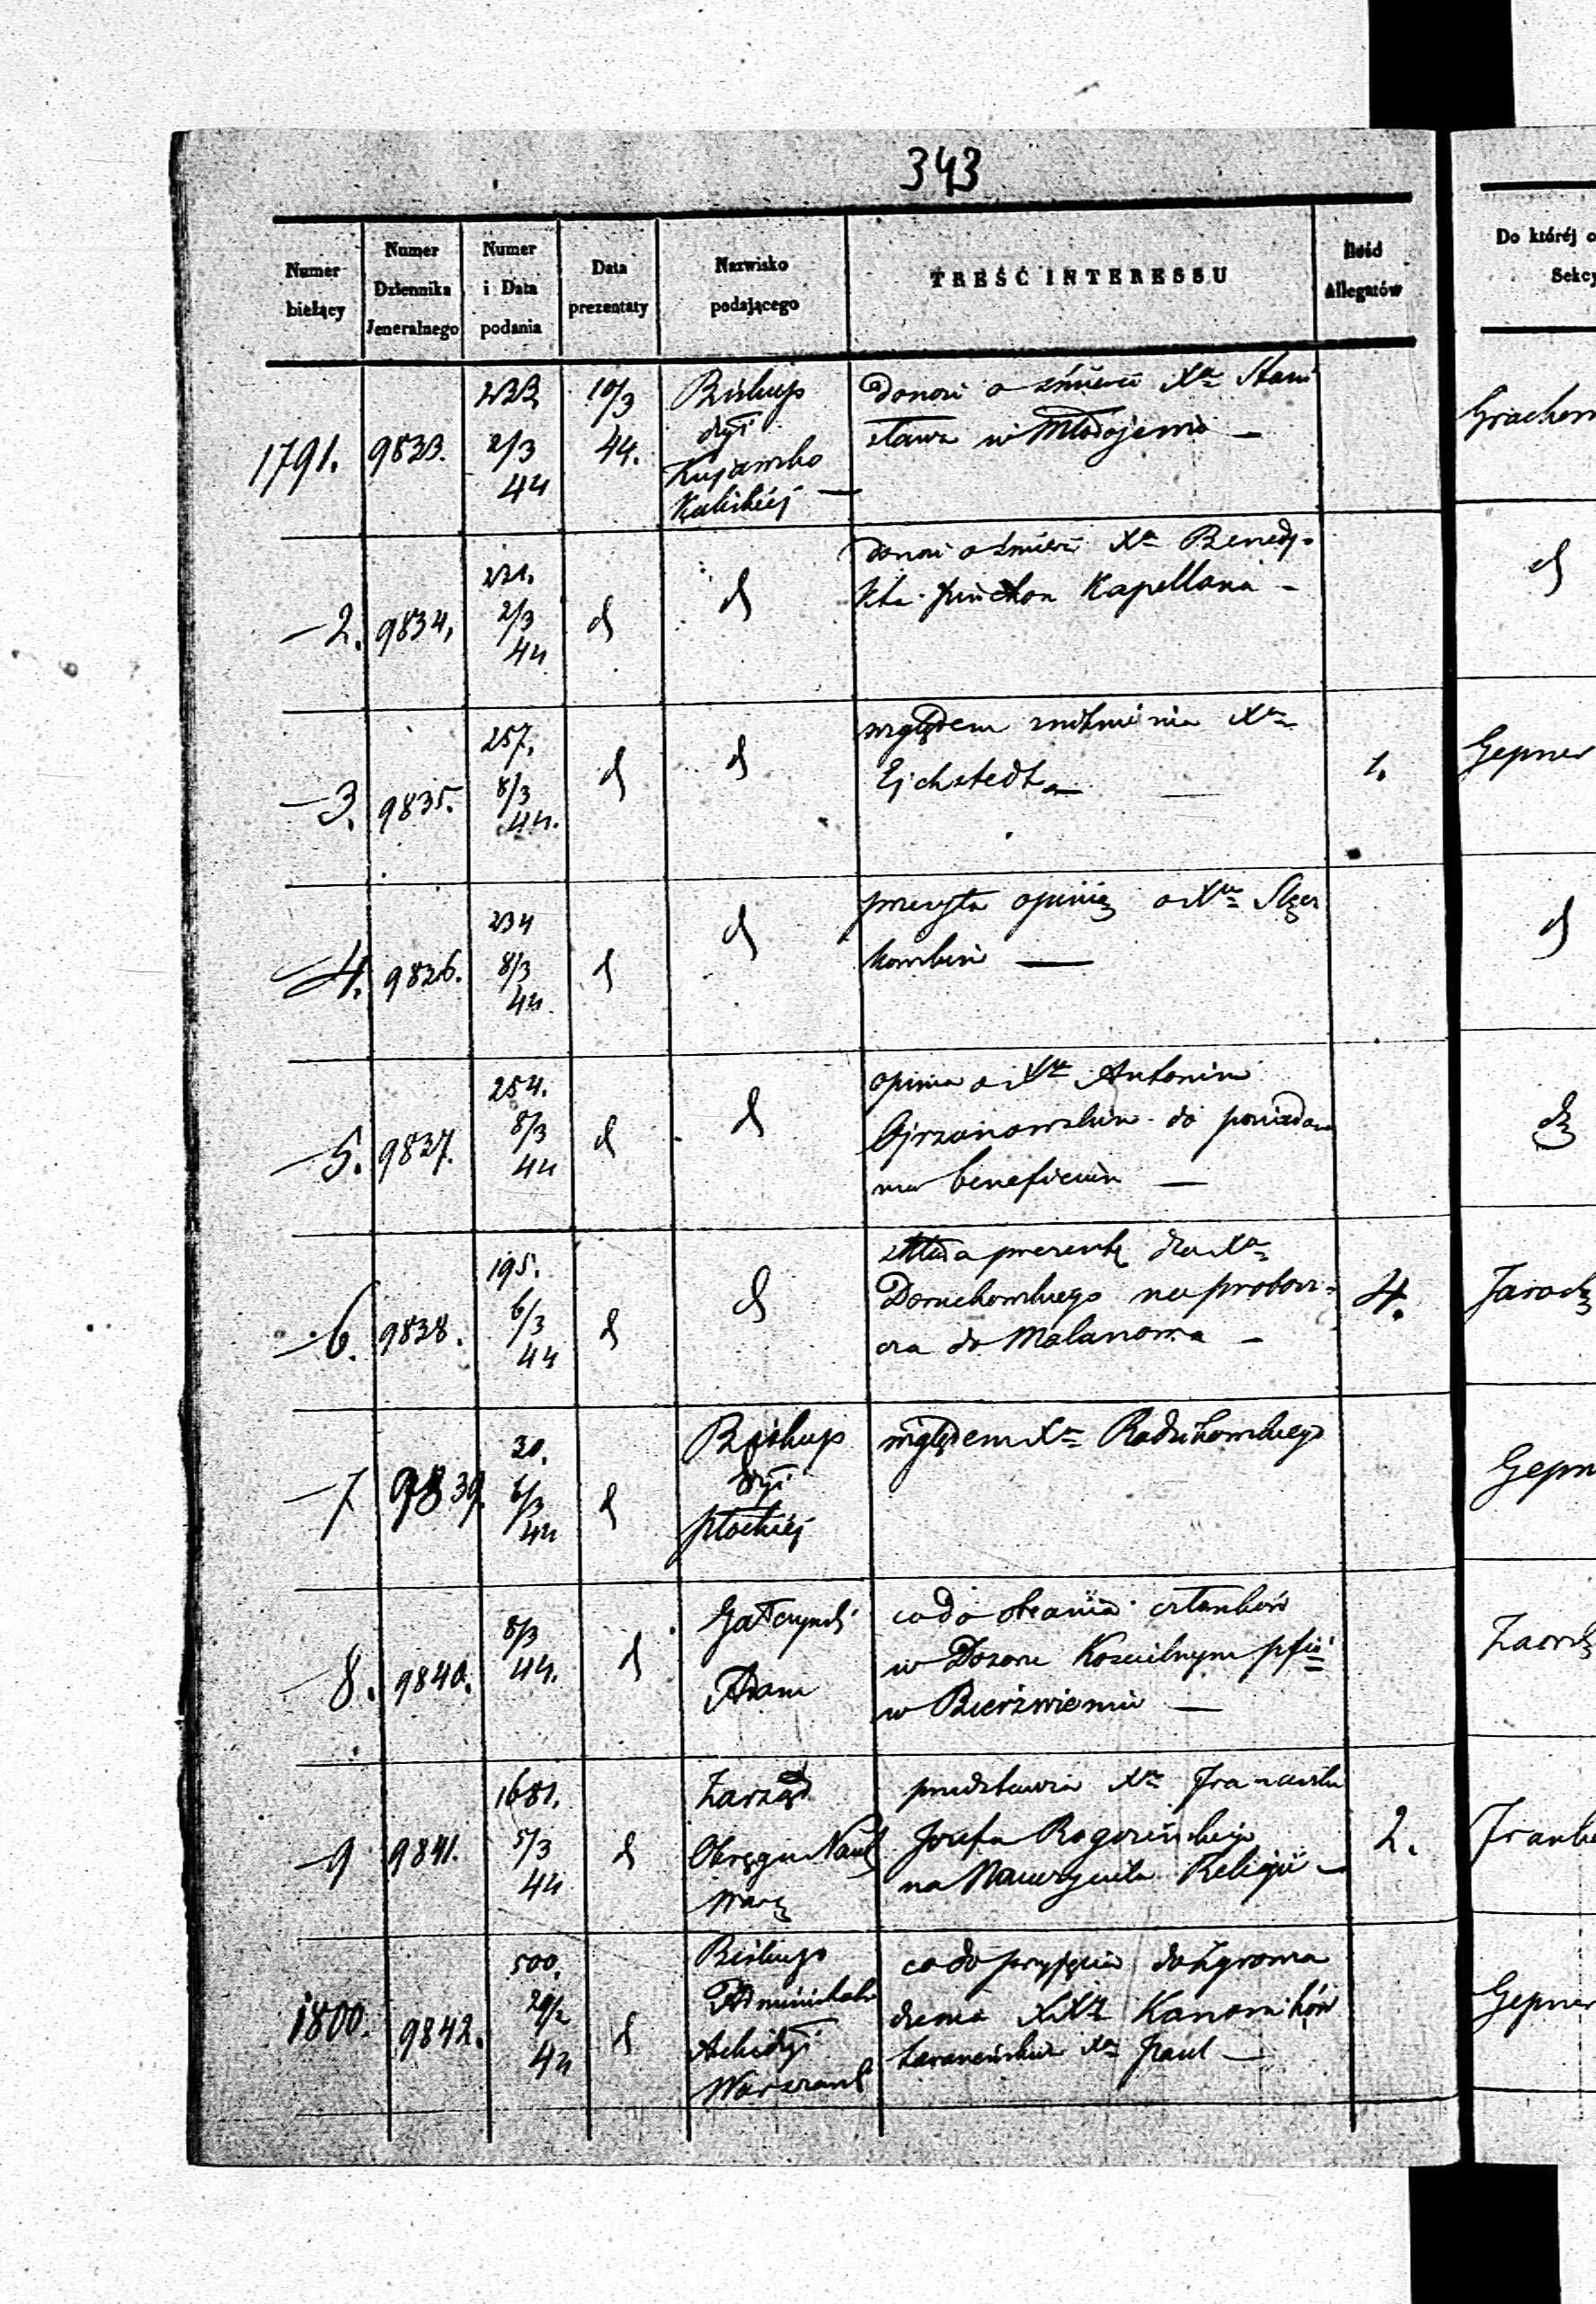 343
Numer bieżący
Numer Dziennika Jeneralnego
Numer i Data podania
Data prezentaty
Nazwisko podającego
TREŚĆ INTERESSU
Ilość Allegatów
Do któréj o
Sekcy
1791. 9833. 233 2/3 44 10/3 44.
Biskup
dyi
Kujawsko
Kaliskiéj —
donosi o śmierci Xa Stani
sława w Młodojewie —
Grachow
—2. 9834, 231. 2/3 44 d d
donosi o śmierci Xa Benedy=
kta Kapellana —
d
—3. 9835. 257. 8/3 44. d d
względem Xa
Ejchstedta —
1.
Gepner
—4. 9836. 234 8/3 44 d d
przesyła opinią o Xu
d
—5. 9837. 254. 8/3 44 d d
opinia o Xu Antonim
do posiadan
na beneficium —
—6. 9838. 195. 6/3 44 d d
składa prezentę dla Xa
Doruchowskiego na probosz=
cza do Malanowa —
4.
Jarock
—7 9839. 30. 6/3 44 d
Biskup
dyi
Płockiéj
względem Xa Radzikowskiego
Gepn
—8. 9840. 8/3 44. d
Gałczyński
Adam
co do obrania członków
w Dozorze Kościelnym
w Bierzwienia —
—9 9841. 1681. 5/3 44 d
Zarząd
Okręgu Nauk
Warz
przedstawia Xa Franciszka
Józefa Rogozińskiego
na Nauczyciela Religii —
2.
Franke
1800. 9842. 500. 29/2 44 d
Biskup
Administrator
Archidyi
Warszawsk
co do przyjęcia do Zgroma
dzenia XXX Kanoników
Laterańskich Xa —
Gepner